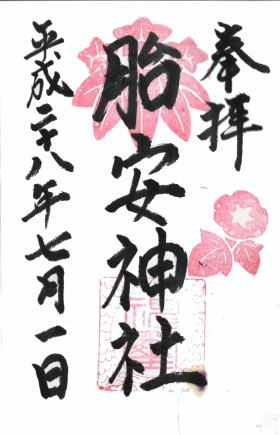 奉拝
胎安神社
平成二十八年七月一日